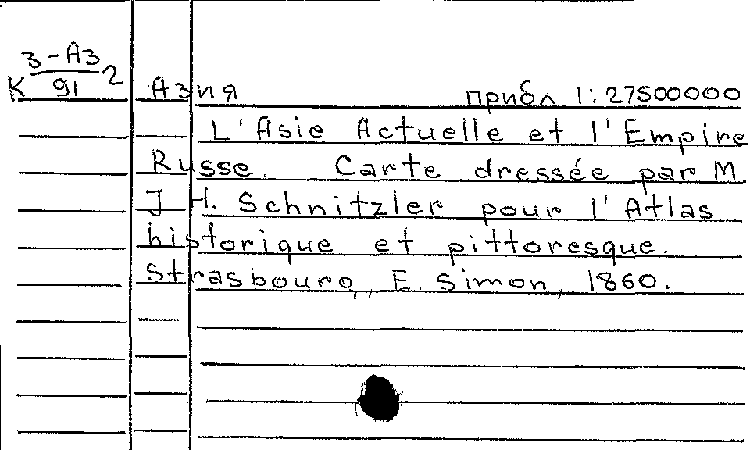 К 3-Аз/91 2
Азия прибл 1:27500000
L'Asie Actuelle et l'Empire
Russe. Carte dressée par M.
J. H. Schnitzler pour l'Atlas
historique et pittoresque.
Strasbourg, E. Simon, 1860.